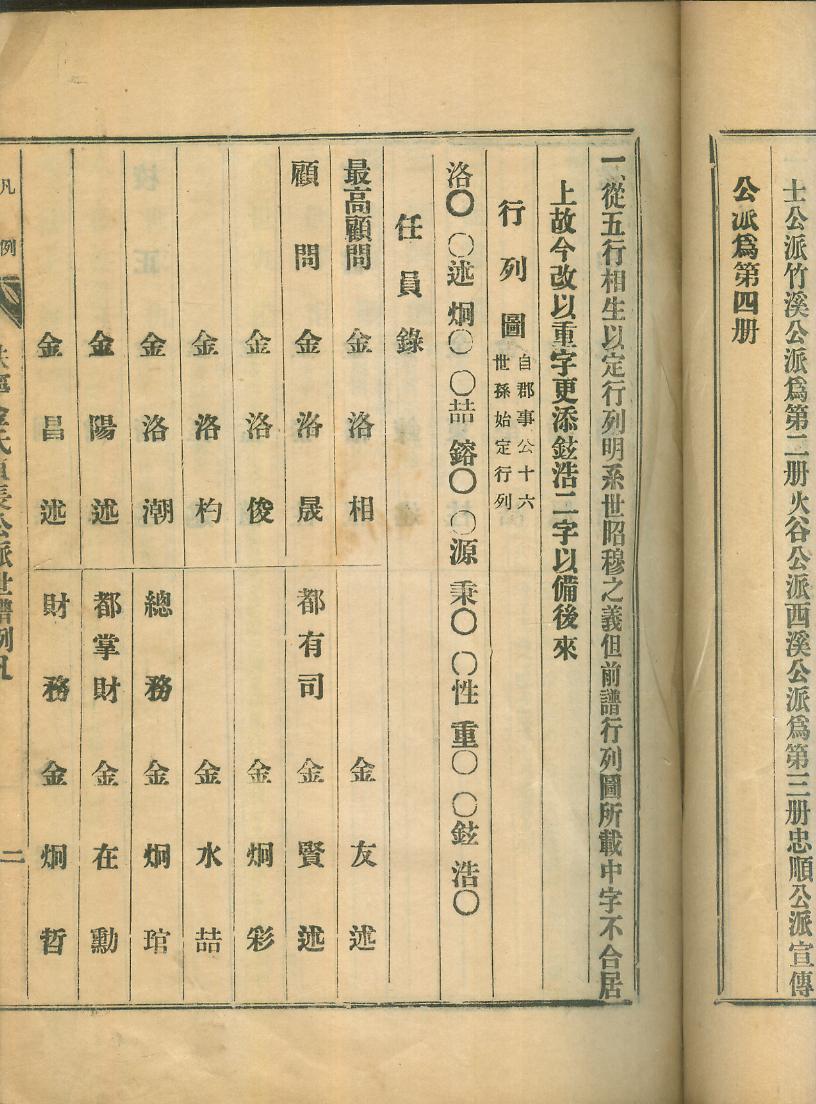 士公派竹溪公派爲第二册火谷公派西溪公派爲第三册忠順公派宣傳
公派爲第四册
一從五行相生以定行列明系世昭穆之義但前譜行列圖所載中字不合居
上故今改以重字更添鉉浩二字以備後來
行列圖
自郡事公十六
世孫始定行列
洛〇 〇述 炯〇 〇喆 鎔〇 〇源 秉〇 〇性 重〇 〇鉉 浩〇
任員錄
最高顧問 金洛相 金友述
顧問 金洛晟 都有司 金賢述
金洛俊 金炯彩
金洛杓 金水喆
金洛潮 總務 金炯琯
金陽述 都掌財 金在勳
金昌述 財務 金炯哲
凡例
二